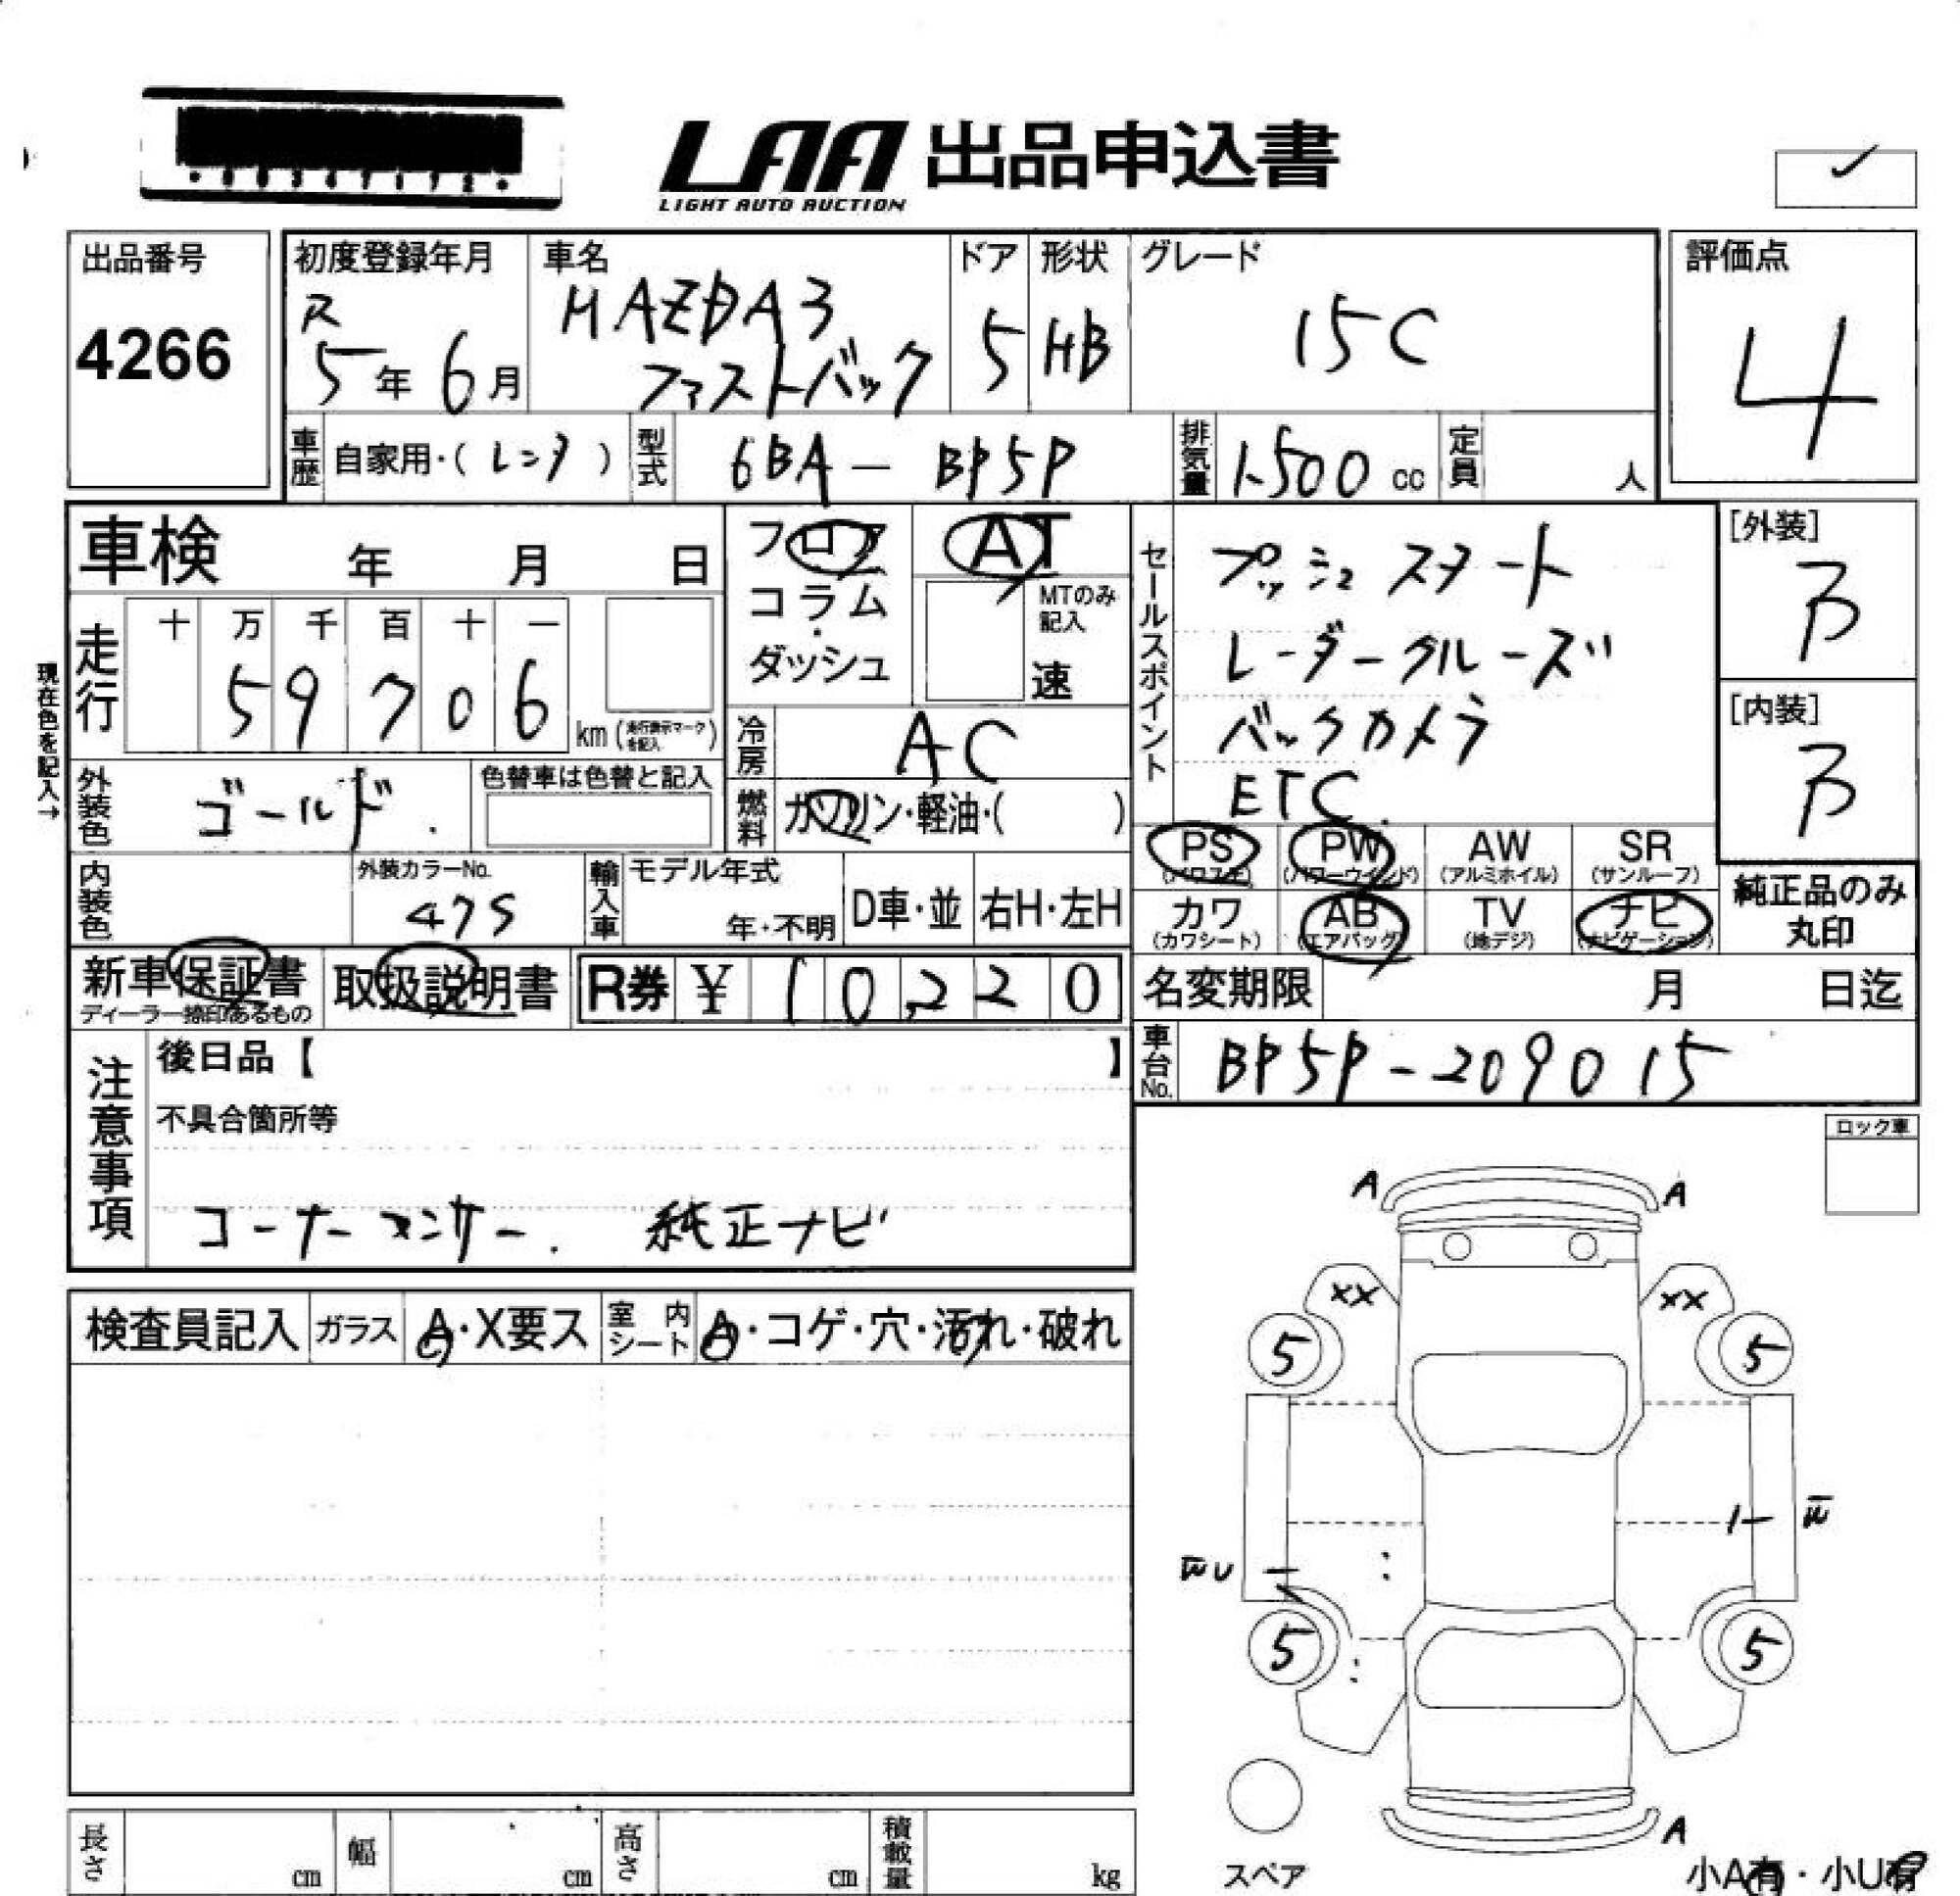 LAA 出品申込書
LIGHT AUTO AUCTION
出品番号
4266
初度登録年月
R
5年 6月
車名
MAZDA3
ファストバック
ドア
5
形状
HB
グレード
15C
評価点
4
車歴 自家用・(レンタ)
型式 6BA-BP5P
排気量 1500cc
定員 人
車検 年 月 日
フロア
コラム
・
ダッシュ
AT
MTのみ
記入
速
セールスポイント
プッシュスタート
レーダークルーズ
バックカメラ
ETC
[外装]
B
[内装]
B
現在色を記入→
走行
十 万 千 百 十 一
5 9 7 0 6
km(走行表示マークを記入)
冷房 AC
燃料 ガソリン・軽油・( )
外装色 ゴールド
色替車は色替と記入
PS
(パワステ)
PW
(パワーウインド)
AW
(アルミホイル)
SR
(サンルーフ)
カワ
(カワシート)
AB
(エアバッグ)
TV
(地デジ)
ナビ
(ナビゲーション)
純正品のみ
丸印
内装色
外装カラーNo.
47S
輸入車
モデル年式
年・不明
D車・並
右H・左H
新車保証書
ディーラー捺印あるもの
取扱説明書
R券 ¥ 1 0 2 2 0
名変期限 月 日迄
車台No. BP5P-209015
注意事項
後日品【 】
不具合箇所等
コーナーセンサー. 純正ナビ
ロック車
検査員記入 ガラス A・X要ス 室内シート A・コゲ・穴・汚れ・破れ
A A
XX XX
5 5
5 5
A
スペア
小A有・小U有
長さ cm 幅 cm 高さ cm 積載量 kg